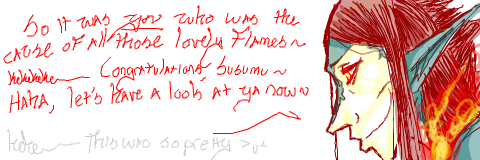 So it was you who was the
cause of all those lovely flames~
hehehehe~ Congratulations, Susumu~
Haha, let's have a look at ya now~
hehe~ This was so pretty >u<